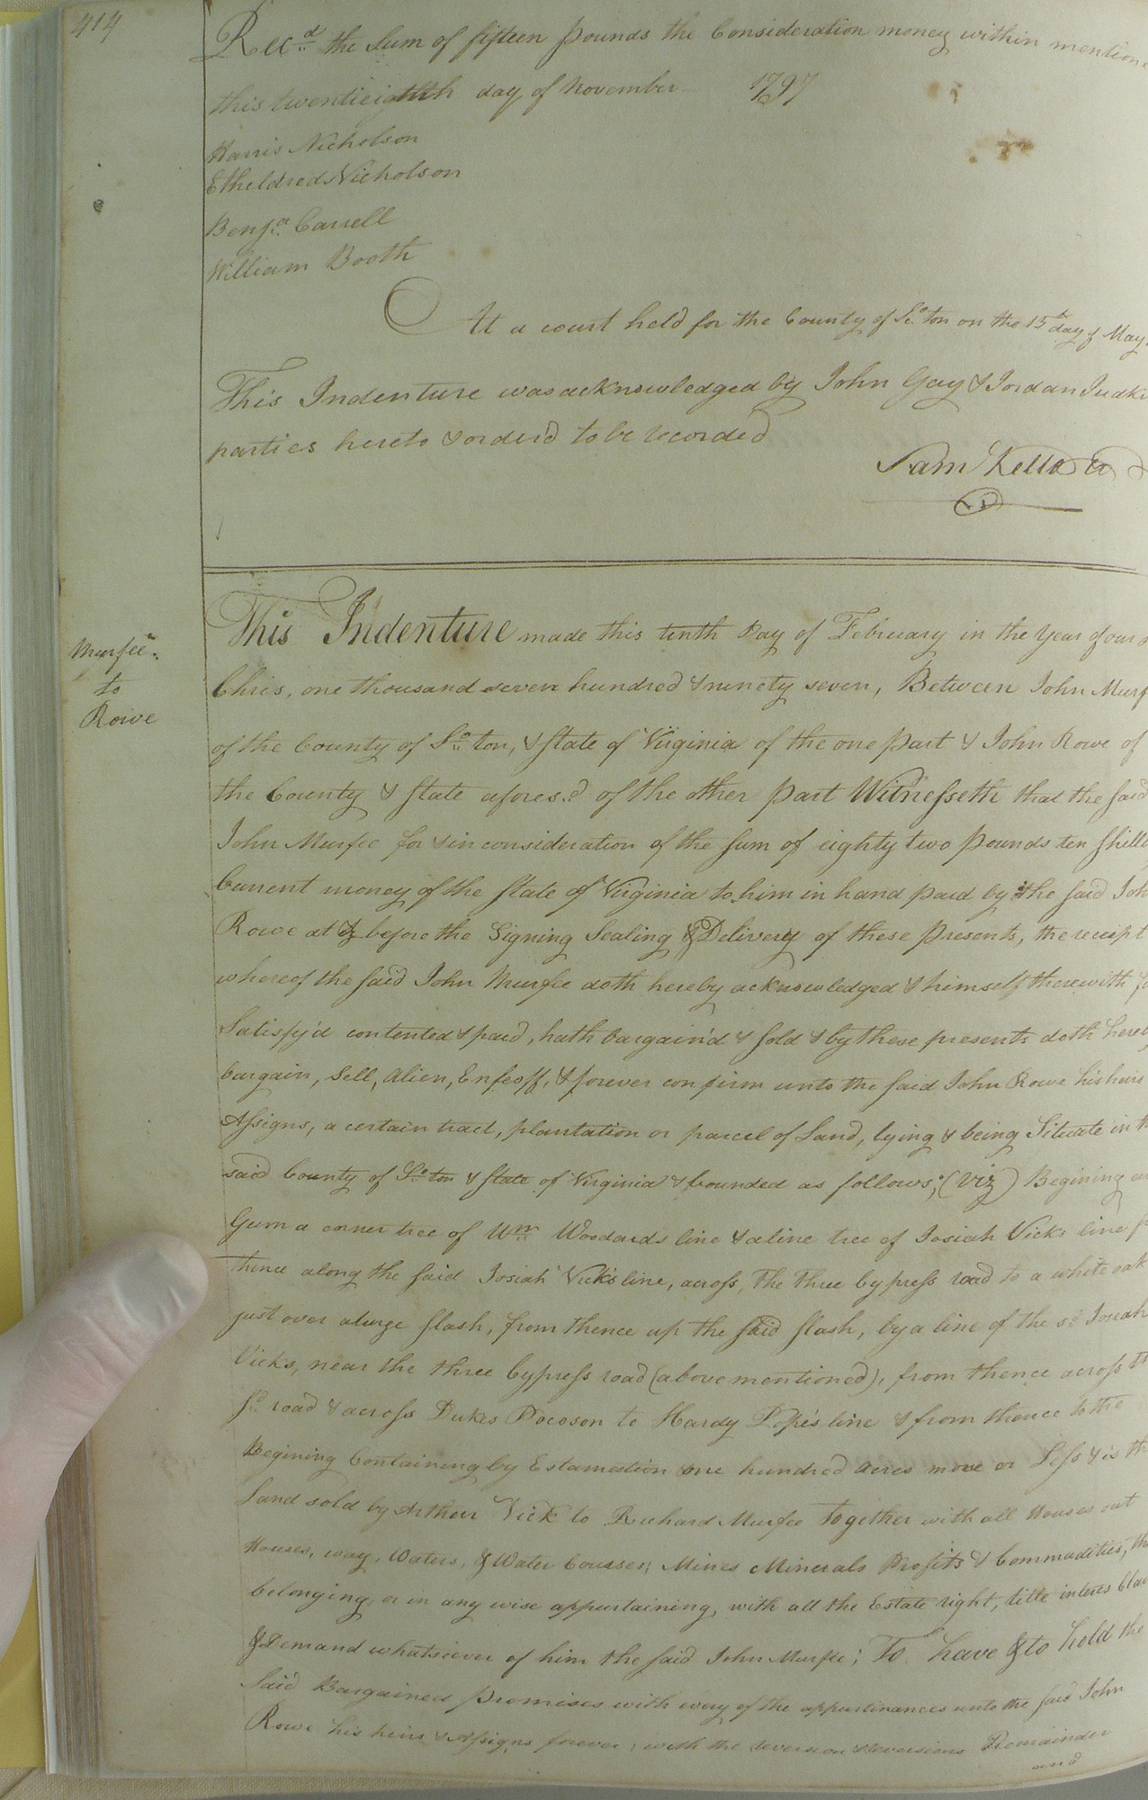 414
Rec.d the Sum of fifteen pounds the Consideration money within mentione
this twentieighth day of November 1797
Harris Nicholson
Etheldred Nicholson
Benja. Carrell
William Booth
At a court held for the County of So.ton on the 15th day of May
This Indenture was acknowledged by John Gay & Jordan Judki
parties hereto & orderd to be recorded
Sam Kello
Murfee
to
Rowe
This Indenture made this tenth Day of February in the Year of our
Chris, one thousand seven hundred & ninety seven, Between John Murf
of the County of So.ton, & State of Virginia of the one part & John Rowe of
the County & State afores.d of the other part Witnesseth that the said
John Murfee for & in consideration of the sum of eighty two pounds ten shill
Current money of the State of Virginia to him in hand paid by the said Joh
Rowe at & before the Signing Sealing & Delivery of these presents, the receipt
whereof the said John Murfee doth hereby acknowledged & himself therewith
Satisfy'd contented & paid, hath bargain'd & sold & by these presents doth here
bargain, Sell, alien, Enfeoff, & forever confirm unto the said John Rowe his heirs
Assigns, a certain tract, plantation or parcel of Land, lying & being Situate in th
said County of So.ton & State of Virginia & bounded as follows; (Viz) Begining
Gum a corner tree of Wm. Woodards line & a line tree of Josiah Vicks line
thence along the said Josiah Vicks line, across, the three cypress road to a white oak
just over a large slash, from thence up the said slash, by a line of the sd Josiah
Vicks, near the three cypress road (above mentioned), from thence across th
sd. road & across Dukes Pocoson to Hardy Pope's line & from thence to the
Begining Containing by Estamation one hundred acres more or Less & is th
Land sold by Arthur Vick to Richard Murfee Together with all Houses out
Houses, way, Waters, & Water Courses, Mines Minerals Profits & Commodities, th
belonging, or in any wise appurtaining, with all the Estate right, title interes Clai
& Demand whatsoever of him the said John Murfee; To have & to hold the
Said Bargained premises with every of the appurtinances unto the said John
Rowe his heirs & Assigns forever, with the reversion & reversions Remainder
and